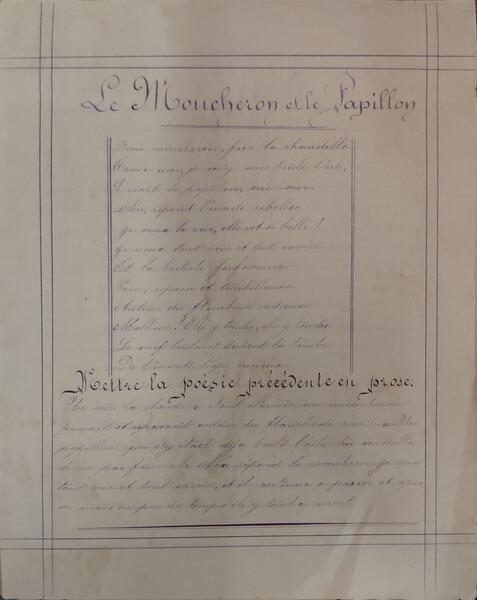 Le Moucheron et le Papillon
Beau moucheron, fuis la chandelle
Crois-moi, je m'y suis brûlé l'aile,
Disait le papillon, un soir.
Non, répond l'insecte rebelle,
Je veux la voir, elle est si belle!
Je veux tout voir et tout savoir
Et la bestiole fanfaronne
Passe, repasse et tourbillonne
Autour du flambeau radieux
Malheur! Elle y touche, elle y tombe
Le suif brûlant devient la tombe
De l'insecte trop curieux
Mettre la poésie précédente en prose.
Un soir la chandelle étant allumée un moucheron
passait et repassait autour du flambeau radieux. Un
papillon qui s'y était déjà brûlé l'aile lui
Non répond le moucheron je veux
tout voir et tout savoir, et il continua a passer et
mais en peu de temps il y